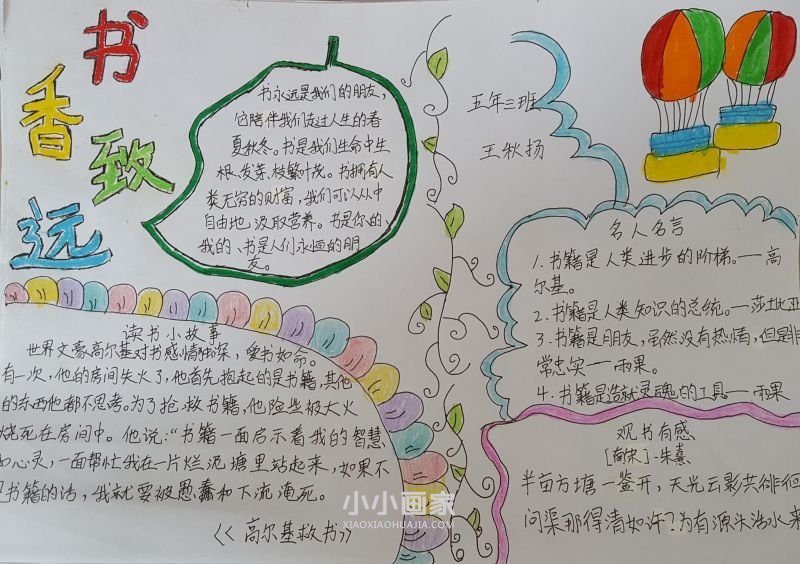 书香致远
书永远是我们的朋友,
它陪伴我们走过人生的春
夏秋冬。书是我们生命中生
根、发芽、枝繁叶茂。书拥有人
类无穷的财富,我们可以从中
自由地汲取营养。书是你的、
我的、书是人们永恒的朋
友。
五年三班
王秋扬
名人名言
1.书籍是人类进步的阶梯。——高
尔基。
2.书籍是人类知识的总统。——莎士比亚
3.书籍是朋友,虽然没有热情,但是非
常忠实——雨果。
4.书籍是造就灵魂的工具。——雨果
读书小故事
世界文豪高尔基对书感情独深,爱书如命。
有一次,他的房间失火了,他首先抱起的是书籍,其他
的东西他都不思考。为了抢救书籍,他险些被大火
烧死在房间中。他说:“书籍一面启示着我的智慧
和心灵,一面帮忙我在一片烂泥塘里站起来,如果不
书籍的话,我就要被愚蠢和下流淹死。
<<高尔基救书>>
观书有感
[南宋]-朱熹
半亩方塘一鉴开,天光云影共徘徊
问渠那得清如许?为有源头活水来
小小画家
XIAOXIAOHUAJIA.COM